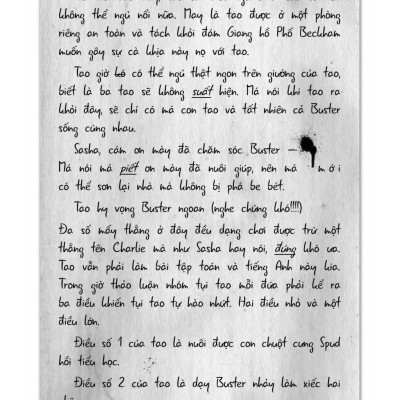 không thể ngủ nổi nữa. May là tao được ở một phòng
riêng an toàn và tách khỏi đám Giang hồ Phố Beckham
muốn gây sự cà khịa này nọ với tao.
Tao giờ có thể ngủ thật ngon trên giường của tao,
biết là ba tao sẽ không suất hiện. Má nói khi tao ra
khỏi đây, sẽ chỉ có má con tao và tất nhiên cả Buster
sống cùng nhau.
Sasha, cám ơn mày đã chăm sóc Buster –
Má nói má piết ơn mày đã nuôi giúp, nên má mới
có thể sơn lại nhà mà không bị phá be bét.
Tao hy vọng Buster ngoan (nghe chừng khó!!!!)
Đa số mấy thằng ở đây đều dạng chơi được trừ một
thằng tên Charlie mà như Sasha hay nói, đúng khó ưa.
Tao vẫn phải làm bài tập toán và tiếng Anh này kia.
Trong giờ thảo luận nhóm tụi tao mỗi đứa phải kể ra
ba điều khiến tụi tao tự hào nhứt. Hai điều nhỏ và một
điều lớn.
Điều số 1 của tao là nuôi được con chuột cưng Spud
hồi tiểu học.
Điều số 2 của tao là dạy Buster nhảy làm xiếc hai